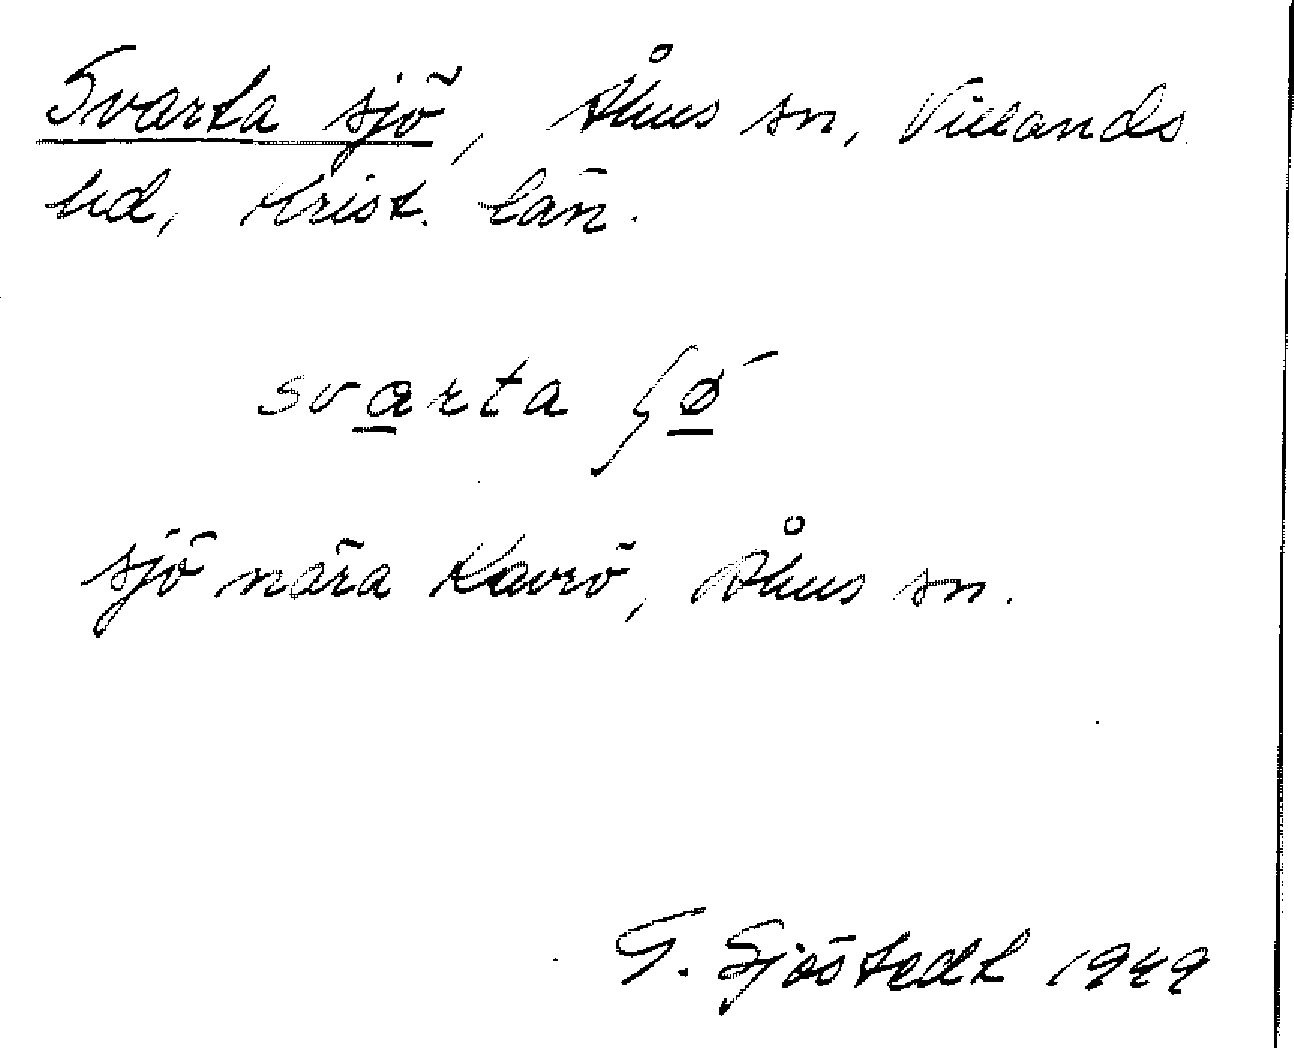 Svarta sjö, Åhus sn, Villands
hd, Krist. län.
svarta ʃø´
sjö nära Kavrö, Åhus sn.
G. Sjöstedt 1949